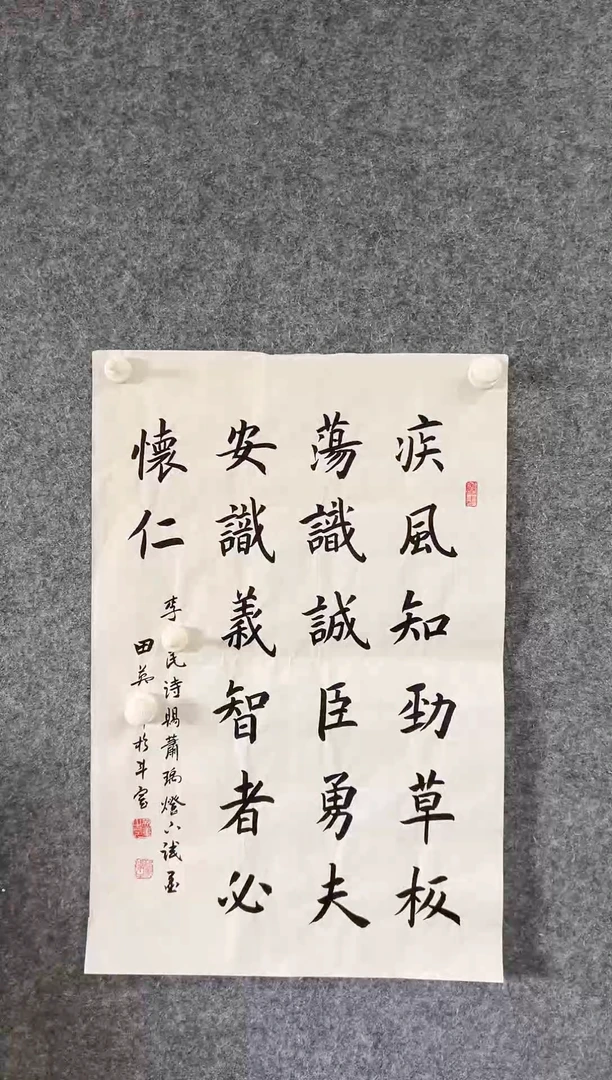 疾風知勁草板
蕩識誠臣勇夫
安識義智者必
懷仁
李 民诗賜蕭瑀燈下試墨
田英 於斗室